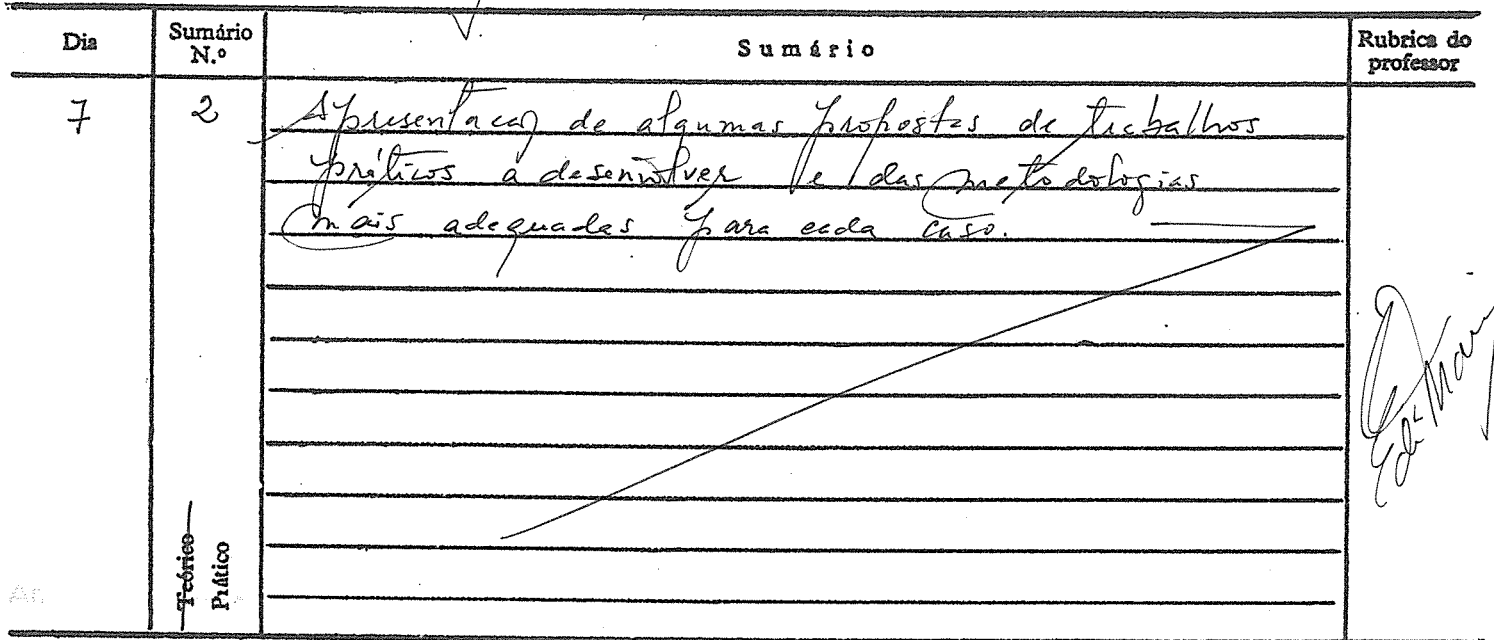 Dia Sumário N.º Sumário Rubrica do professor
7 2 Apresentação de algumas propostas de trabalhos
práticos a desenvolver e das metodologias
mais adequadas para cada caso.
Teórico
Prático